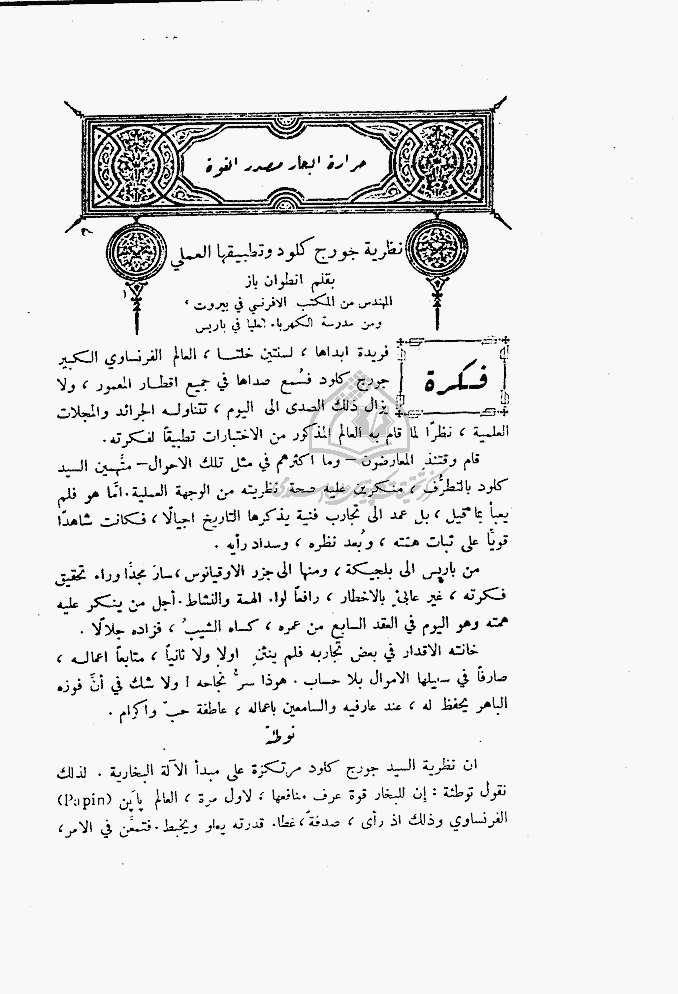 حرارة البحار مصدر القوة
نظرية جورج كلود وتطبيقها العملي
بقلم انطوان باز
المهندس من المكتب الافرنسي في بيروت
ومن مدرسة الكهرباء العليا في باريس
فكرة
فريدة ابداها، لسنتين خلتا، العالم الفرنساوي الكبير
جورج كلود فسُمع صداها في جميع اقطار المعمور، ولا
يزال ذلك الصدى الى اليوم، تتناوله الجرائد والمجلات
العلمية، نظرًا لما قام به العالم المذكور من الاختبارات تطبيقاً لفكرته.
قام وقتئذٍ المعارضون – وما اكثرهم في مثل تلك الاحوال – متَّهمين السيد
كلود بالتطرُّف، منكرين عليه صحة نظريته من الوجهة العملية. امَّا هو فلم
يعبأ بما قيل، بل عمد الى تجارب فنية يذكرها التاريخ اجيالًا، فكانت شاهدًا
قويًّا على ثبات همته، وبُعد نظره، وسداد رأيه.
من باريس الى بلجيكة، ومنها الى جزر الاوقيانوس، سارَ مجدًّا وراء تحقيق
فكرته، غير عابئٍ بالاخطار، رافعاً لواء الهمة والنشاط. أجل من ينكر عليه
همته وهو اليوم في العقد السابع من عمره، كساه الشيبُ، فزاده جلالًا.
خانته الاقدار في بعض تجاربه فلم ينثنِ اولا ولا ثانياً، متابعاً اعماله،
صارفاً في سبيلها الاموال بلا حساب. هوذا سرُّ نجاحه! ولا شك في أنَّ فوزه
الباهر يحفظ له، عند عارفيه والسامعين باعماله، عاطفة حبّ واكرام.
توطئة
ان نظرية السيد جورج كلود مرتكزة على مبدأ الآلة البخارية. لذلك
نقول توطئة: إن للبخار قوة عرف منافعها، لاول مرة، العالم پاپَن (Papin)
الفرنساوي وذلك اذ رأى، صدفةً، غطاء قدرته يعلو ويخبط. فتمعَّن في الامر،